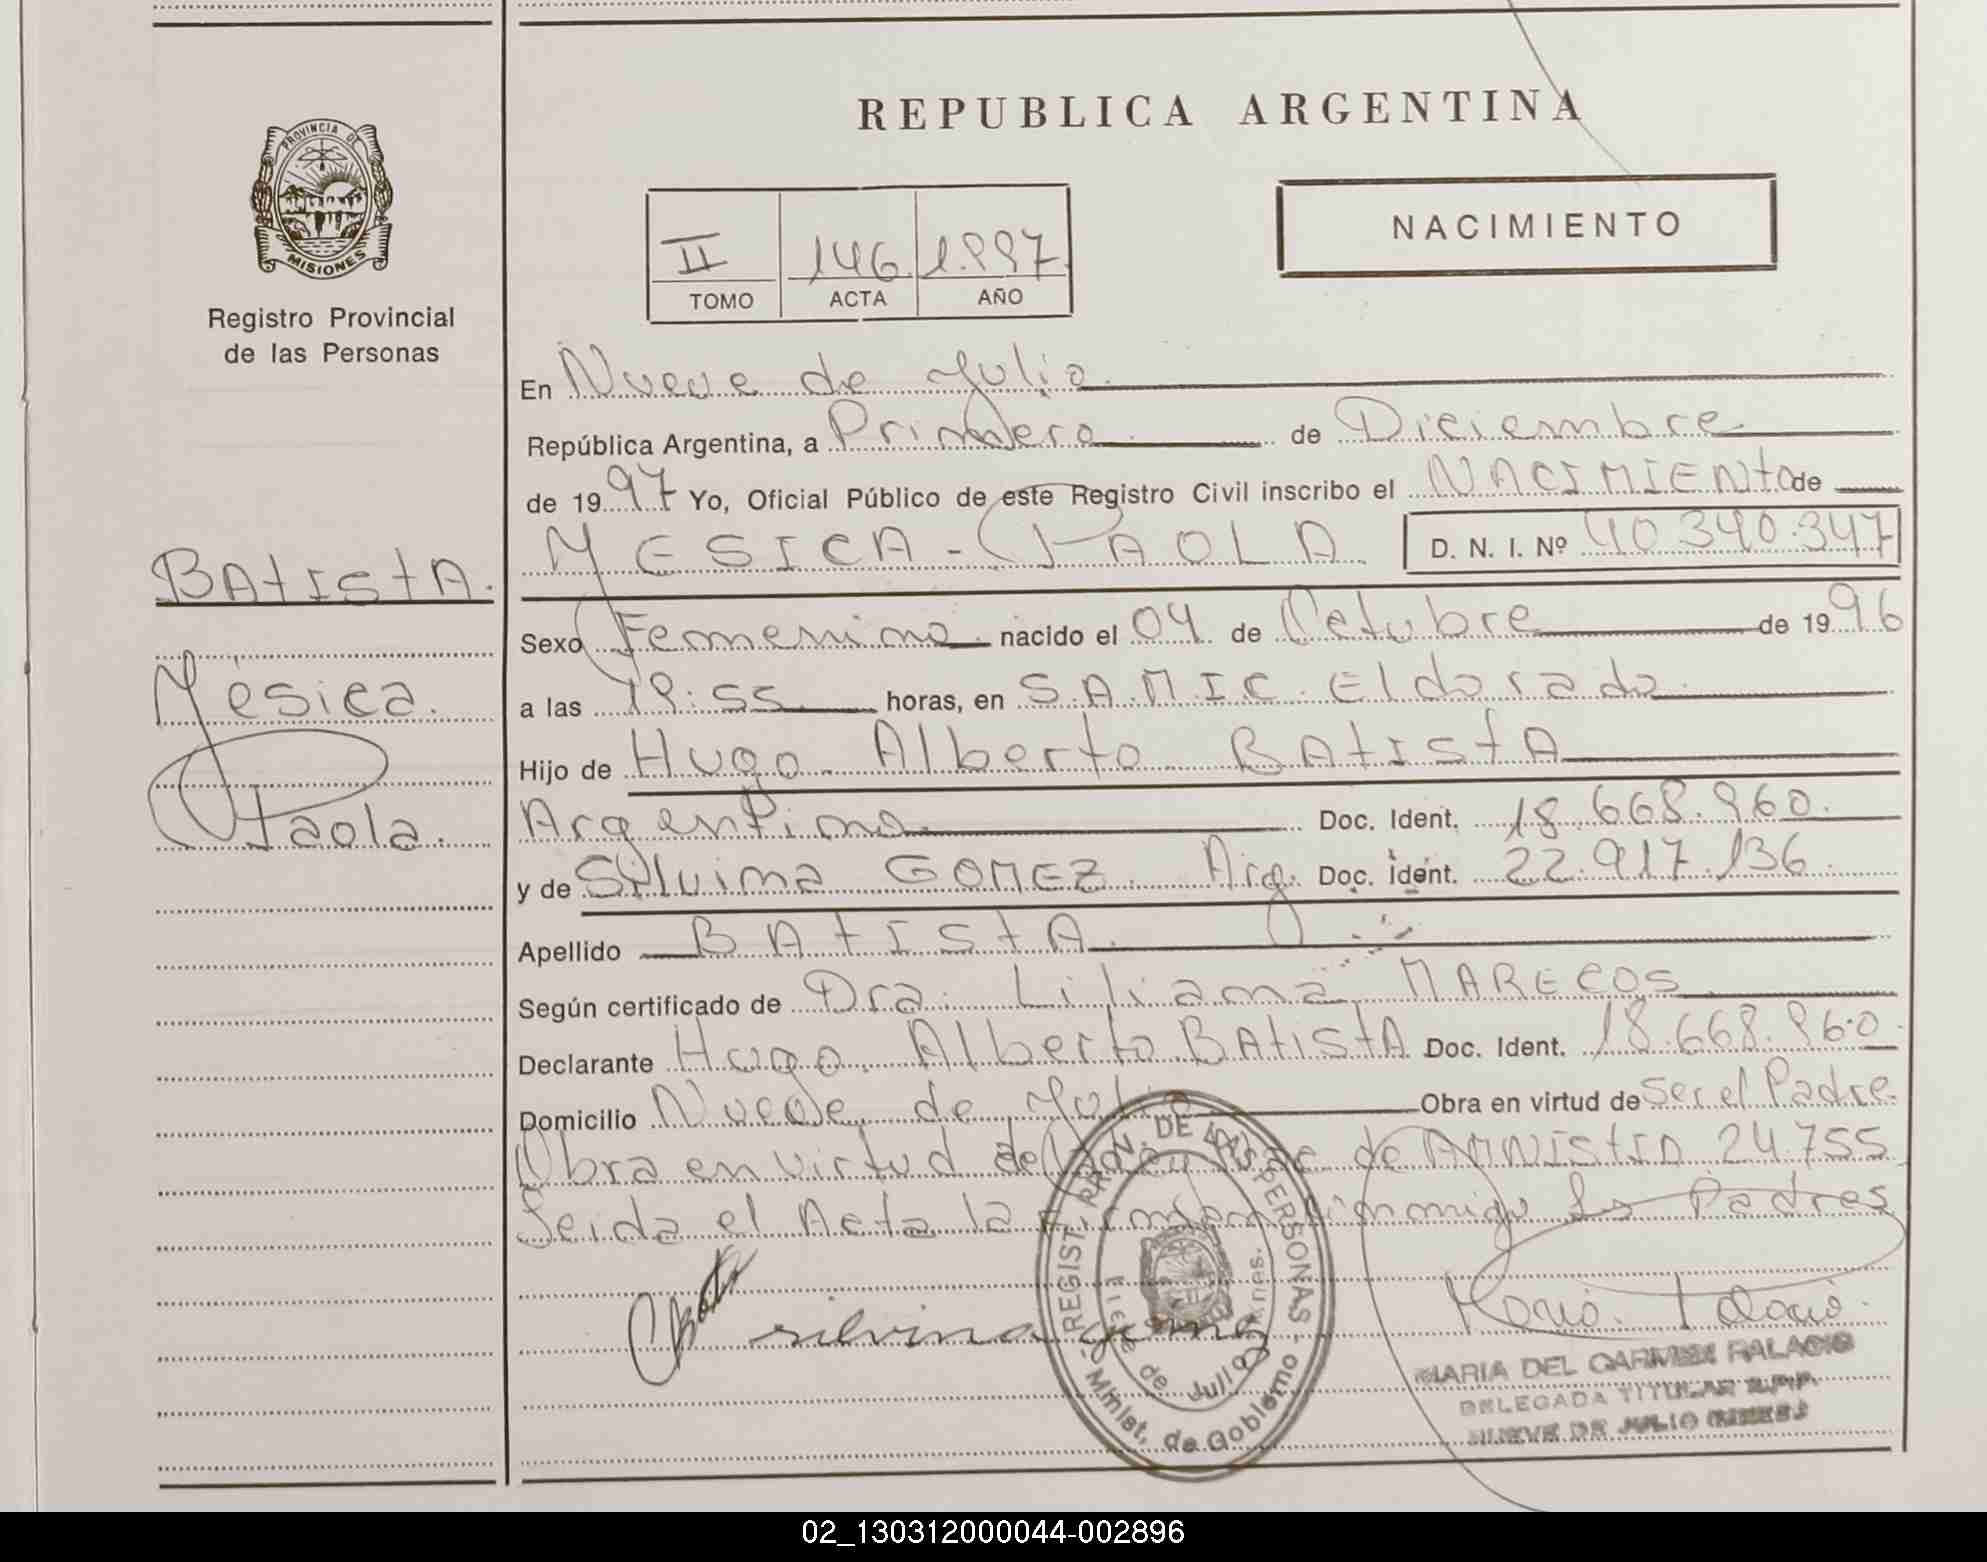 REPUBLICA ARGENTINA
PROVINCIA DE
MISIONES
Registro Provincial
de las Personas
NACIMIENTO
II 146 1.997
TOMO ACTA AÑO
En Nueve de Julio
República Argentina, a Primero de Diciembre
de 1997 Yo, Oficial Público de este Registro Civil inscribo el NACIMIENTO de
MESICA - PAOLA D. N. I. Nº 40.340.347
BATISTA.
Mésica.
Paola.
Sexo Femenino nacido el 04 de Octubre de 1996
a las 19:55 horas, en S.A.M.I.C. Eldorado
Hijo de Hugo Alberto BATISTA
Argentino Doc. Ident. 18.668.960.
y de Silvina GOMEZ Arg. Doc. Ident. 22.917.136
Apellido BATISTA
Según certificado de Dra. Liliana MARECOS
Declarante Hugo Alberto BATISTA Doc. Ident. 18.668.960
Domicilio Nueve de Julio Obra en virtud de Ser el Padre
Obra en virtud de AMNISTIA 24.755
Leida el Acta la firman conmigo los Padres
silvina gomez
REGIST. PROV. DE LAS PERSONAS
Minist. de Gobierno
de Julio
MARIA DEL CARMEN PALACIO
DELEGADA TITULAR R.P.P.
NUEVE DE JULIO
02_130312000044-002896